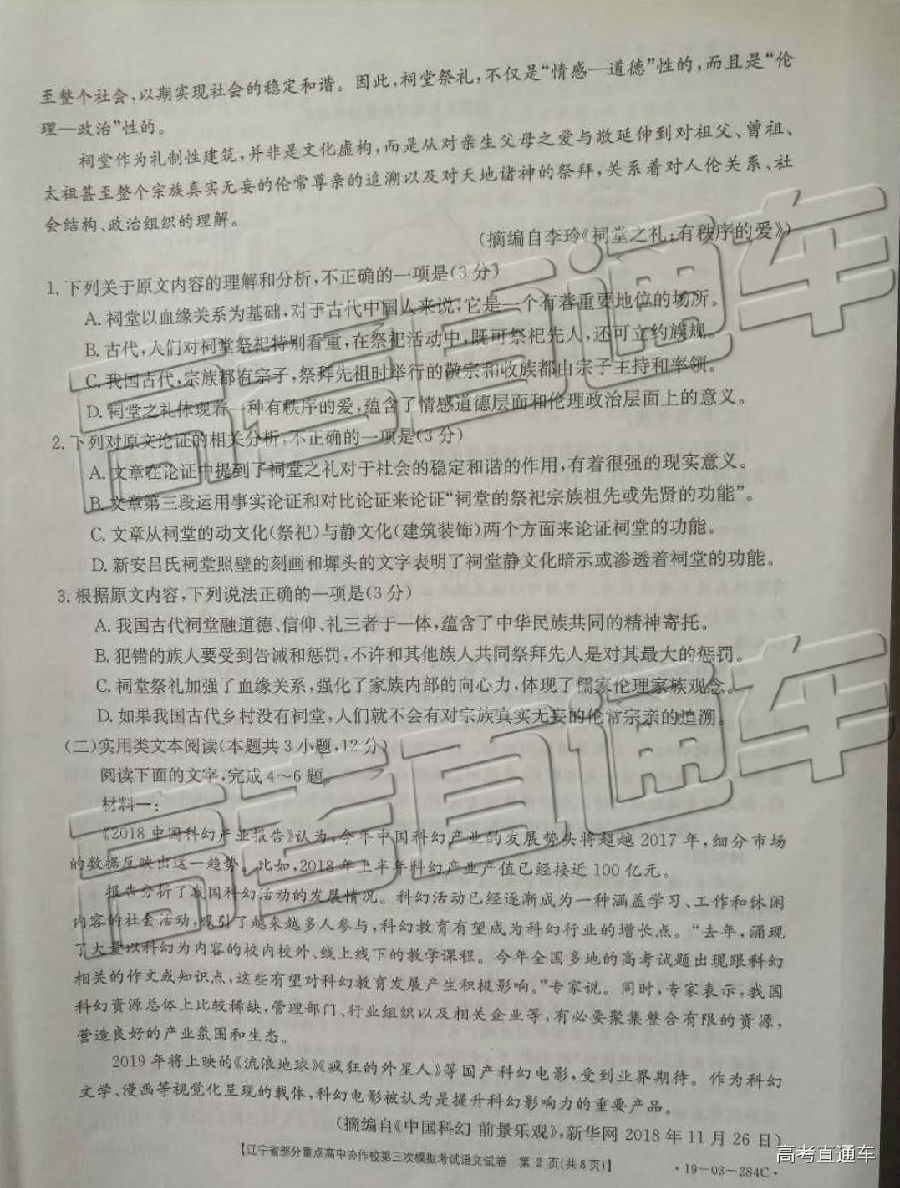 至整个社会,以期实现社会的稳定和谐。因此,祠堂祭礼,不仅是“情感—道德”性的,而且是“伦
理—政治”性的。
祠堂作为礼制性建筑,并非是文化虚构,而是从对亲生父母之爱与敬延伸到对祖父、曾祖、
太祖甚至整个宗族真实无妄的伦常尊亲的追溯以及对天地诸神的祭拜,关系着对人伦关系、社
会结构、政治组织的理解。
(摘编自李玲《祠堂之礼:有秩序的爱》)
1.下列关于原文内容的理解和分析,不正确的一项是(3分)
A.祠堂以血缘关系为基础,对于古代中国人来说,它是一个有着重要地位的场所。
B.古代,人们对祠堂祭祀特别看重,在祭祀活动中,既可祭祀先人,还可立约族规。
C.我国古代,宗族都有宗子,祭拜先祖时举行的敬宗和收族都由宗子主持和率领。
D.祠堂之礼体现着一种有秩序的爱,蕴含了情感道德层面和伦理政治层面上的意义。
2.下列对原文论证的相关分析,不正确的一项是(3分)
A.文章在论证中提到了祠堂之礼对于社会的稳定和谐的作用,有着很强的现实意义。
B.文章第三段运用事实论证和对比论证来论证“祠堂的祭祀宗族祖先或先贤的功能”。
C.文章从祠堂的动文化(祭祀)与静文化(建筑装饰)两个方面来论证祠堂的功能。
D.新安吕氏祠堂照壁的刻画和墀头的文字表明了祠堂静文化暗示或渗透着祠堂的功能。
3.根据原文内容,下列说法正确的一项是(3分)
A.我国古代祠堂融道德、信仰、礼三者于一体,蕴含了中华民族共同的精神寄托。
B.犯错的族人要受到告诫和惩罚,不许和其他族人共同祭拜先人是对其最大的惩罚。
C.祠堂祭礼加强了血缘关系,强化了家族内部的向心力,体现了儒家伦理家族观念。
D.如果我国古代乡村没有祠堂,人们就不会有对宗族真实无妄的伦常宗亲的追溯。
(二)实用类文本阅读(本题共3小题,12分)
阅读下面的文字,完成4~6题。
材料一:
《2018中国科幻产业报告》认为,今年中国科幻产业的发展势头将超越2017年,细分市场
的数据反映出这一趋势。比如,2018年上半年科幻产业产值已经接近100亿元。
报告分析了我国科幻活动的发展情况。科幻活动已经逐渐成为一种涵盖学习、工作和休闲
内容的社会活动,吸引了越来越多人参与,科幻教育有望成为科幻行业的增长点。“去年,涌现
了大量以科幻为内容的校内校外、线上线下的教学课程。今年全国多地的高考试题出现跟科幻
相关的作文或知识点,这些有望对科幻教育发展产生积极影响。”专家说。同时,专家表示,我国
科幻资源总体上比较稀缺,管理部门、行业组织以及相关企业等,有必要聚集整合有限的资源,
营造良好的产业氛围和生态。
2019年将上映的《流浪地球》《疯狂的外星人》等国产科幻电影,受到业界期待。作为科幻
文学、漫画等视觉化呈现的载体,科幻电影被认为是提升科幻影响力的重要产品。
(摘编自《中国科幻 前景乐观》,新华网2018年11月26日)
【辽宁省部分重点高中协作校第三次模拟考试语文试卷 第2页(共8页)】
·19-03-284C·
高考直通车
高考直通车
高考直通车